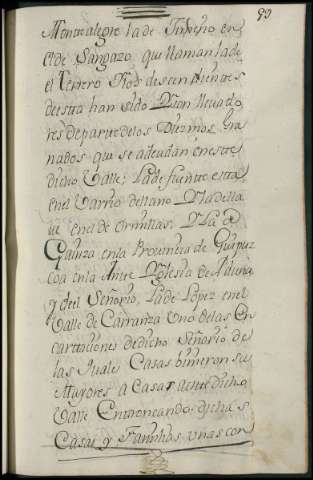 99
Montealegre la de Treceño en
el de Sangazo que llaman la de
el Terrero
de esta han sido
res de parte de los Diezmos Gra
nados que se adeudan en este
dicho Valle; La de fuente esta
en el varrio de llano
en el de ornillas. Y La de
Gainza en la Provincia de Guipuz
coa en la Ante Yglesia de
y del Señorio, La de Lopez en el
Valle de Carranza uno de las En
cartaciones de dicho Señorio de
las quales Casas binieron sus
Mayores a Casar a este dicho
Valle Entroncando dichas
Casas y Familias unas con